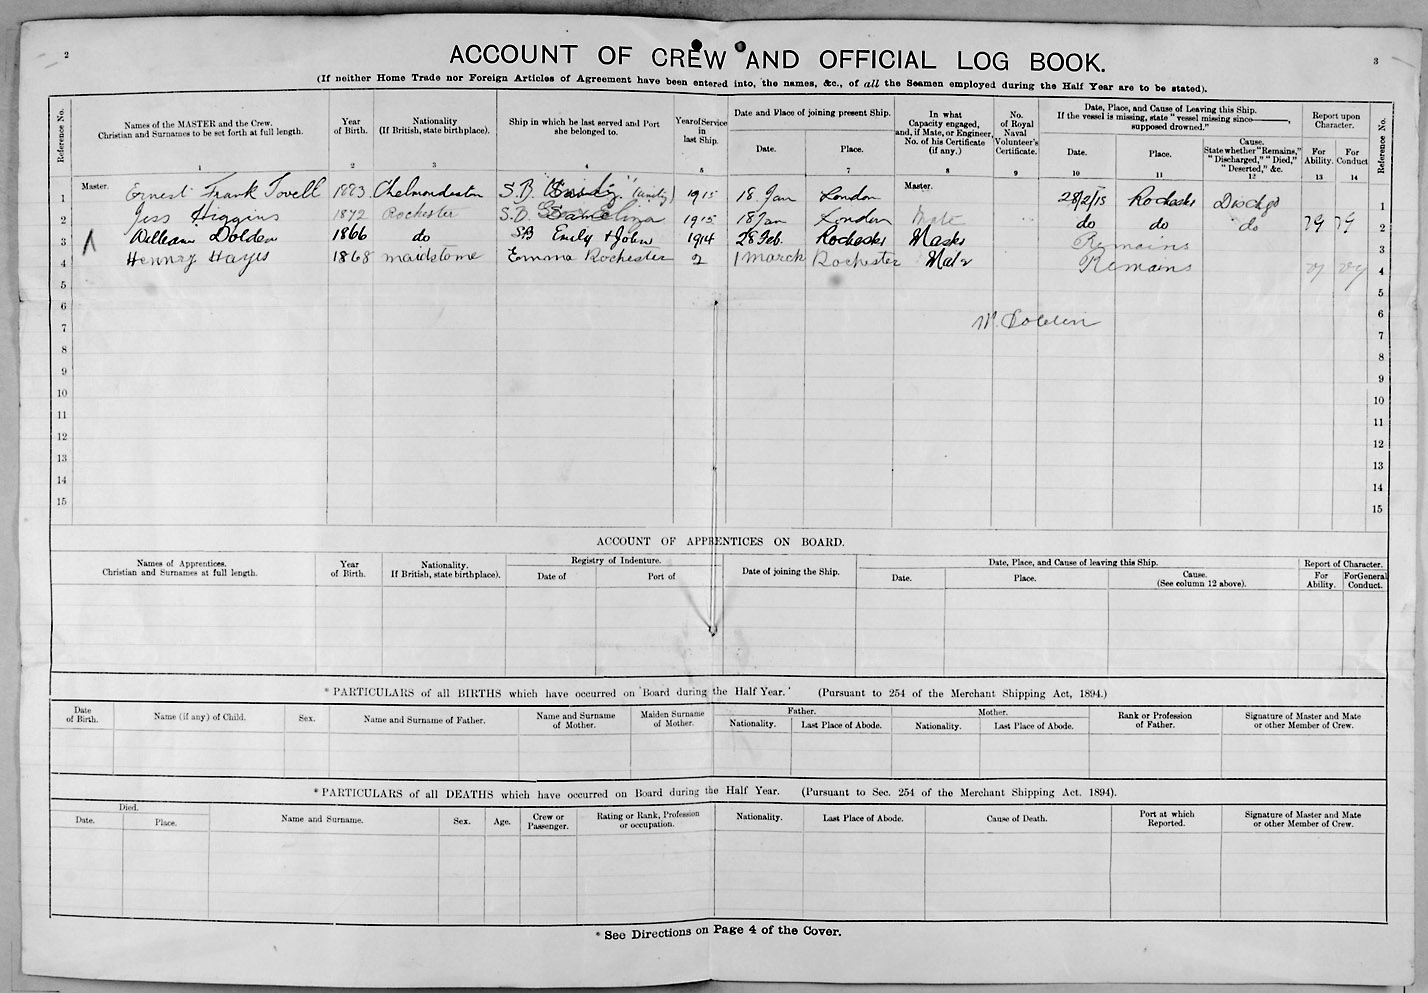 2
ACCOUNT OF CREW AND OFFICIAL LOG BOOK.
3
(If neither Home Trade nor Foreign Articles of Agreement have been entered into, the names, &c., of all the Seamen employed during the Half Year are to be stated).
Reference No.
Names of the MASTER and the Crew.
Christian and Surnames to be set forth at full length.
1
Year of Birth.
2
Nationality
(If British, state birthplace).
3
Ship in which he last served and Port she belonged to.
4
Year of Service in last Ship.
5
Date and Place of joining present Ship.
Date.
Place.
7
In what Capacity engaged, and, if Mate, or Engineer, No. of his Certificate (if any.)
8
No. of Royal Naval Volunteer's Certificate.
9
Date, Place, and Cause of Leaving this Ship.
If the vessel is missing, state "vessel missing since———, supposed drowned."
Date.
10
Place.
11
Cause.
State whether "Remains," "Discharged," "Died," "Deserted," &c.
12
Report upon Character.
For Ability.
13
For Conduct
14
Reference No.
1 Master. Ernest Frank Tovell 1883 Chelmondeston S.B. (Unity) 1915 18 Jan London Master. 28/2/15 Rochester Dischgd 1
2 Jess Higgins 1872 Rochester S.B. 1915 18 Jan London Mate do do do VG VG 2
3 William Dolden 1866 do SB Emily & John 1914 28 Feb. Rochester Master Remains 3
4 Hennry Hayes 1868 maidstone Emma Rochester 2 1 march Rochester Mate Remains VG VG 4
5 5
6 6
7 W. Dolden 7
8 8
9 9
10 10
11 11
12 12
13 13
14 14
15 15
ACCOUNT OF APPRENTICES ON BOARD.
Names of Apprentices.
Christian and Surnames at full length.
Year of Birth.
Nationality.
If British, state birthplace).
Registry of Indenture.
Date of
Port of
Date of joining the Ship.
Date, Place, and Cause of leaving this Ship.
Date.
Place.
Cause.
(See column 12 above).
Report of Character.
For Ability.
For General Conduct.
*PARTICULARS of all BIRTHS which have occurred on Board during the Half Year. (Pursuant to 254 of the Merchant Shipping Act, 1894.)
Date of Birth.
Name (if any) of Child.
Sex.
Name and Surname of Father.
Name and Surname of Mother.
Maiden Surname of Mother.
Father.
Nationality.
Last Place of Abode.
Mother.
Nationality.
Last Place of Abode.
Rank or Profession of Father.
Signature of Master and Mate or other Member of Crew.
*PARTICULARS of all DEATHS which have occurred on Board during the Half Year. (Pursuant to Sec. 254 of the Merchant Shipping Act. 1894).
Died.
Date.
Place.
Name and Surname.
Sex.
Age.
Crew or Passenger.
Rating or Rank, Profession or occupation.
Nationality.
Last Place of Abode.
Cause of Death.
Port at which Reported.
Signature of Master and Mate or other Member of Crew.
* See Directions on Page 4 of the Cover.